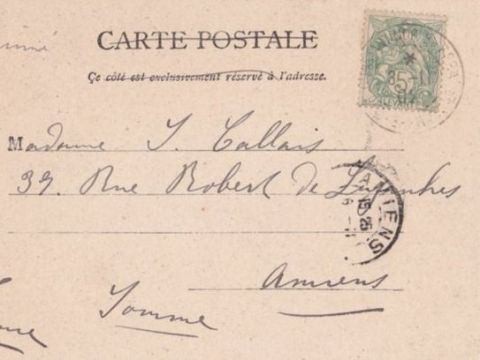 CARTE POSTALE
Ce côté est exclusivement réservé à l'adresse.
Madame J. Callais
39. Rue Robert de Luzarches
Amiens
Somme
AMIENS
5